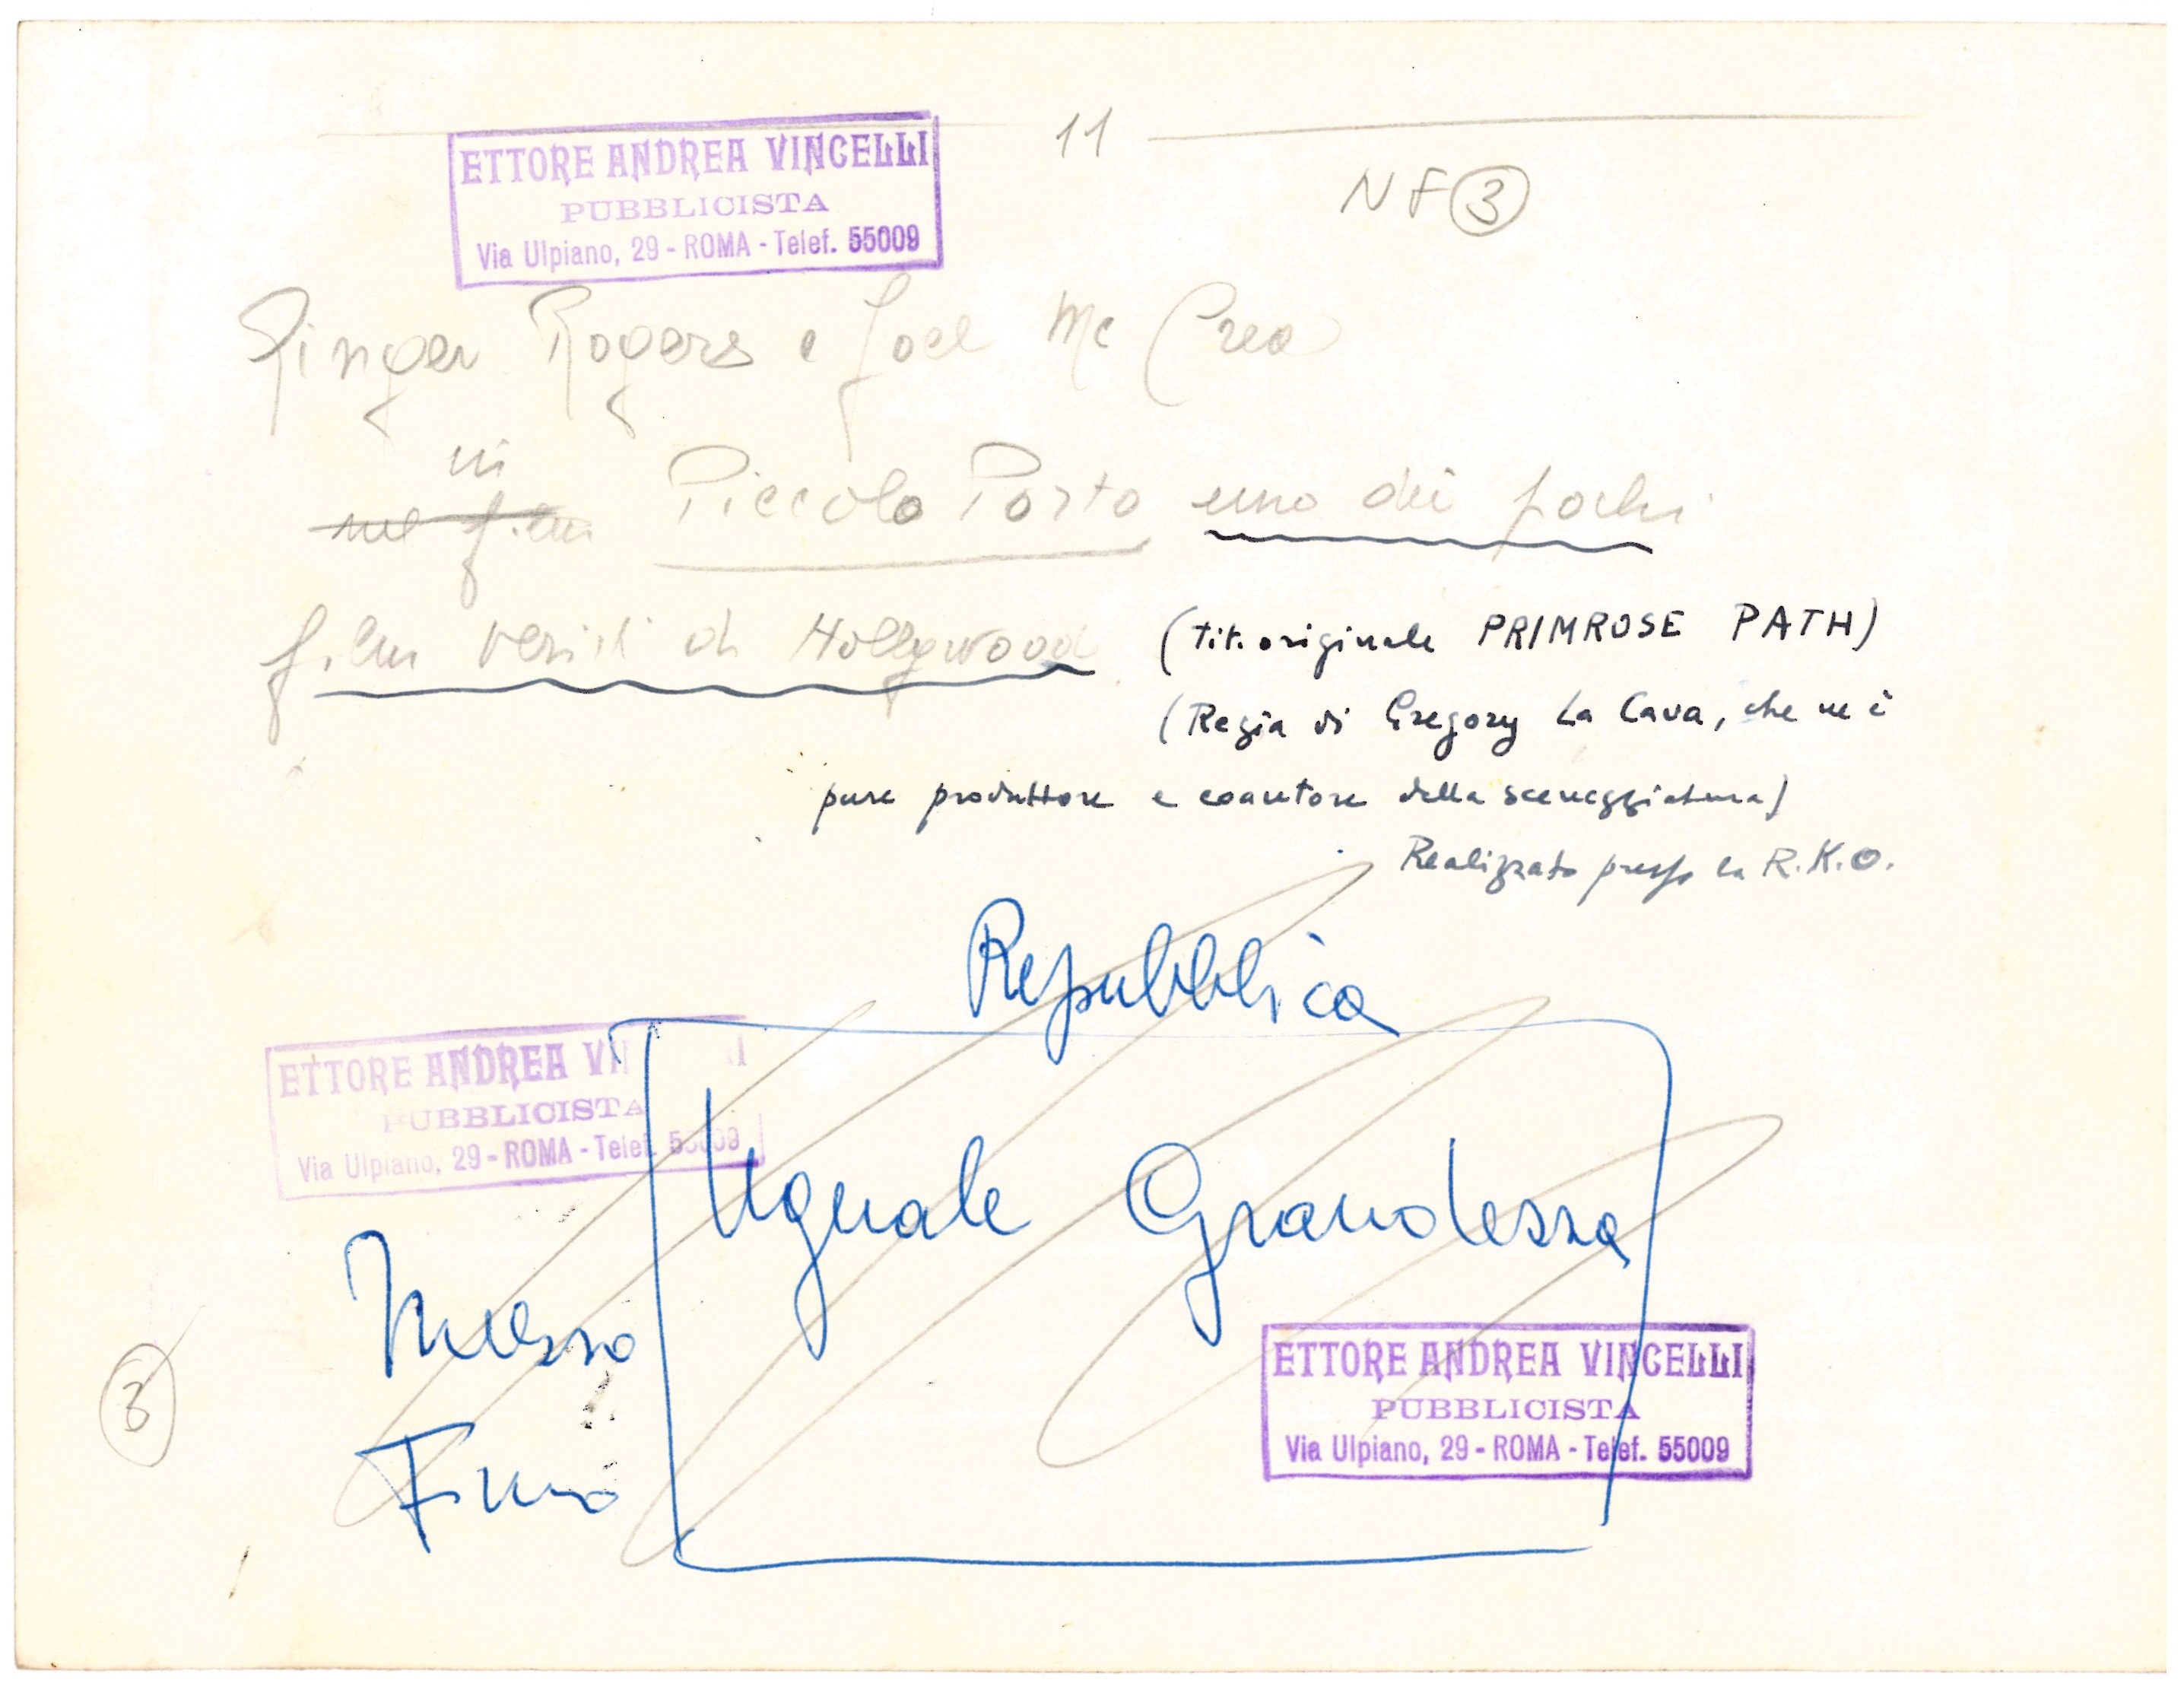 11
ETTORE ANDREA VINCELLI
PUBBLICISTA
Via Ulpiano, 29 - ROMA - Telef. 55009
NF 3
Ginger Rogers e Joel Mc Crea
in
nel film Piccolo Porto uno dei pochi
film veristi di Hollywood (tit. originale PRIMROSE PATH)
(Regia di Gregory La Cava, che ne è
pure produttore e coautore della sceneggiatura)
Realizzato presso la R.K.O.
Repubblica
ETTORE ANDREA VIN
PUBBLICISTA
Via Ulpiano, 29 - ROMA - Telef. 55009
Uguale Grandezza
Mezzo
Fino
3
ETTORE ANDREA VINCELLI
PUBBLICISTA
Via Ulpiano, 29 - ROMA - Telef. 55009